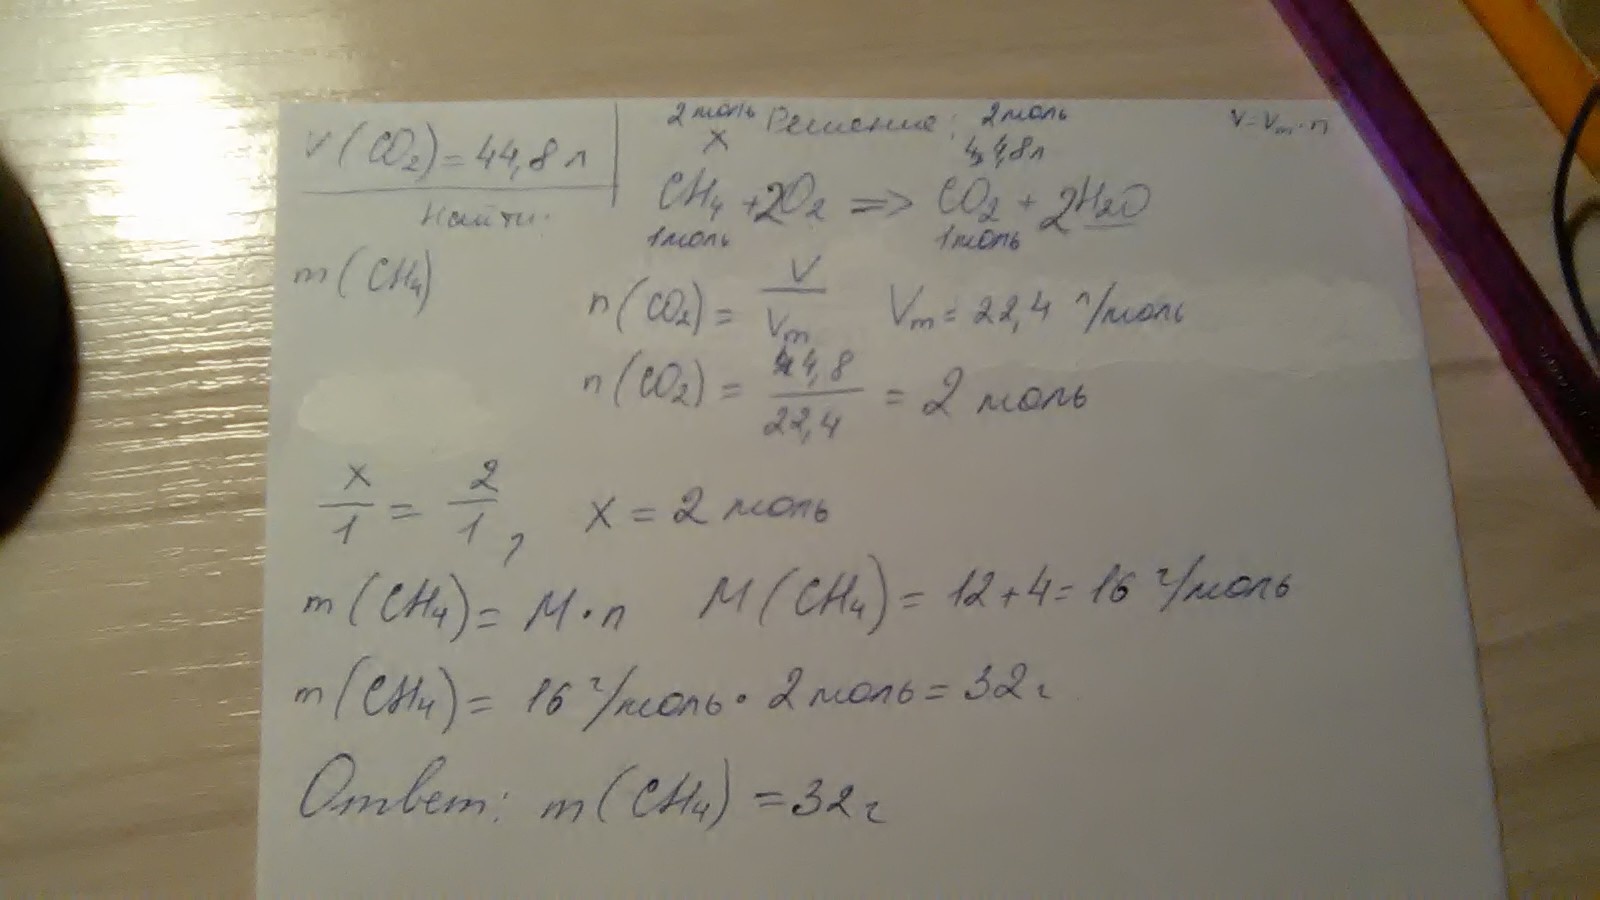 V(CO₂) = 44,8 л
Найти:
m(CH₄)
Решение:
V = Vₘ · n
2 моль 2 моль
x 44,8 л
CH₄ + 2O₂ => CO₂ + 2H₂O
1 моль 1 моль
n(CO₂) = V/Vₘ Vₘ = 22,4 л/моль
n(CO₂) = 44,8/22,4 = 2 моль
x/1 = 2/1, x = 2 моль
m(CH₄) = M · n M(CH₄) = 12 + 4 = 16 г/моль
m(CH₄) = 16 г/моль · 2 моль = 32 г
Ответ: m(CH₄) = 32 г